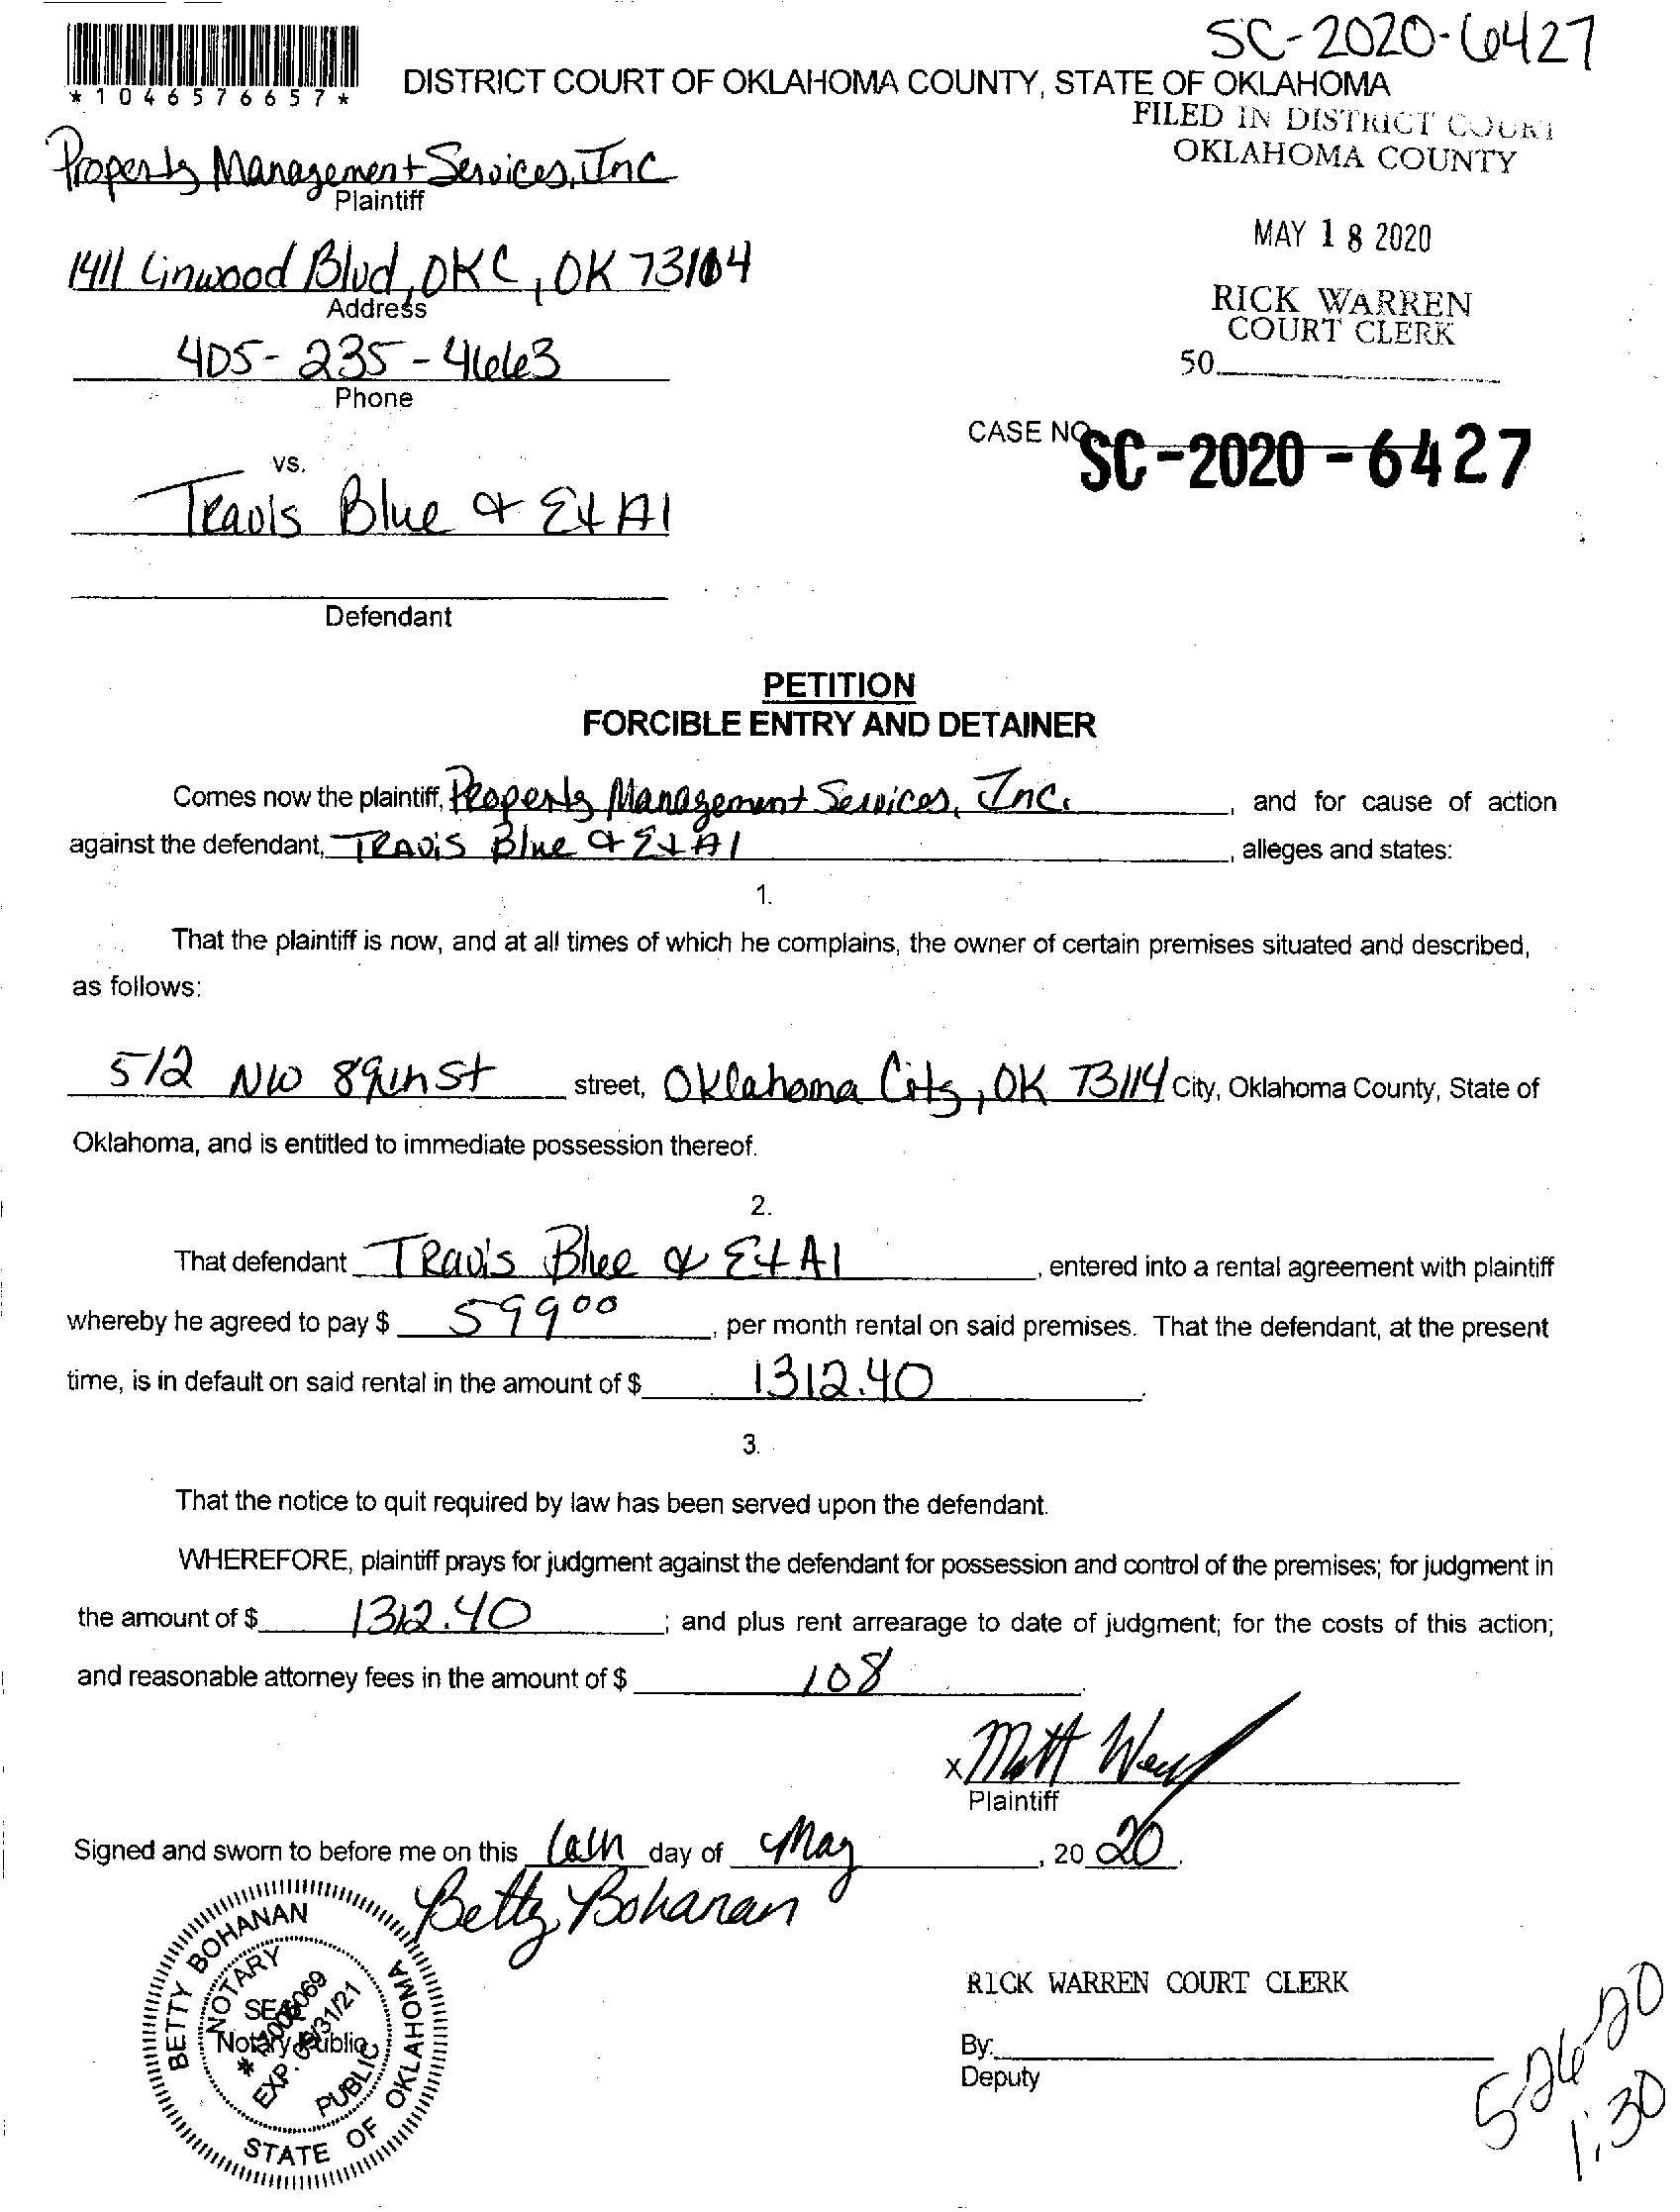 SC-2020-6427
*1046576657*
DISTRICT COURT OF OKLAHOMA COUNTY, STATE OF OKLAHOMA
FILED IN DISTRICT COURT
OKLAHOMA COUNTY
Property Management Services, Inc
Plaintiff
MAY 18 2020
1411 Linwood Blvd, OKC, OK 73104
Address
RICK WARREN
COURT CLERK
405-235-4663
50
Phone
CASE NO. SC-2020-6427
vs.
Travis Blue & Et Al
Defendant
PETITION
FORCIBLE ENTRY AND DETAINER
Comes now the plaintiff, Property Management Services, Inc. , and for cause of action
against the defendant, Travis Blue & Et Al , alleges and states:
1.
That the plaintiff is now, and at all times of which he complains, the owner of certain premises situated and described,
as follows:
512 NW 89th St street, Oklahoma City, OK 73114 City, Oklahoma County, State of
Oklahoma, and is entitled to immediate possession thereof.
2.
That defendant Travis Blue & Et Al , entered into a rental agreement with plaintiff
whereby he agreed to pay $ 599 00 , per month rental on said premises. That the defendant, at the present
time, is in default on said rental in the amount of $ 1312.40 .
3.
That the notice to quit required by law has been served upon the defendant.
WHEREFORE, plaintiff prays for judgment against the defendant for possession and control of the premises; for judgment in
the amount of $ 1312.40 ; and plus rent arrearage to date of judgment; for the costs of this action;
and reasonable attorney fees in the amount of $ 108 .
x Matt
Plaintiff
Signed and sworn to before me on this day of May , 20 20 .
Betty Bohanan
BETTY BOHANAN
NOTARY
SEAL
Notary Public
EXP. 05/31/21
PUBLIC
STATE OF OKLAHOMA
RICK WARREN COURT CLERK
By:
Deputy
5-26-20
1:30